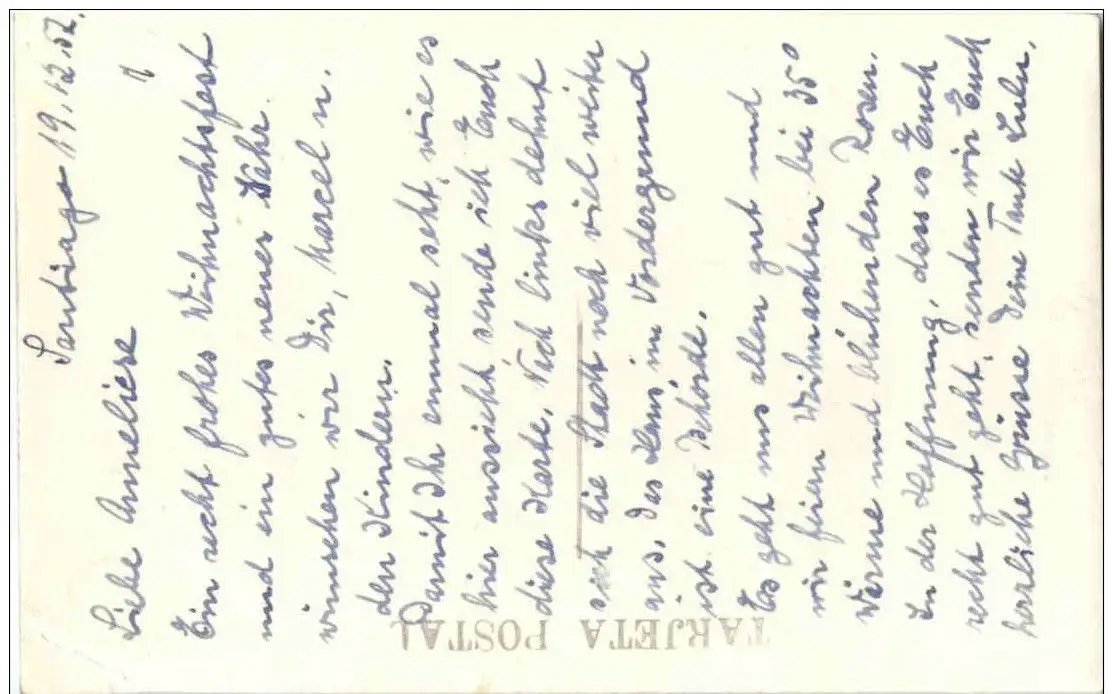 Santiago 19.12.52.
Liebe Anneliese
Ein recht frohes Weihnachtsfest
und ein gutes neues Jahr
wünschen wir Dir, Marcel u.
den Kindern.
Damit Ihr einmal seht, wie es
hier aussieht sende ich Euch
diese Karte. Nach links dehnt
sich die Stadt noch viel weiter
aus, das Haus im Vordergrund
ist eine Behörde.
Es geht uns allen gut und
wir feiern Weihnachten bei 35°
Wärme und blühenden Rosen.
In der Hoffnung, dass es Euch
recht gut geht, senden wir Euch
herzliche Grüsse Deine Tante
TARJETA POSTAL